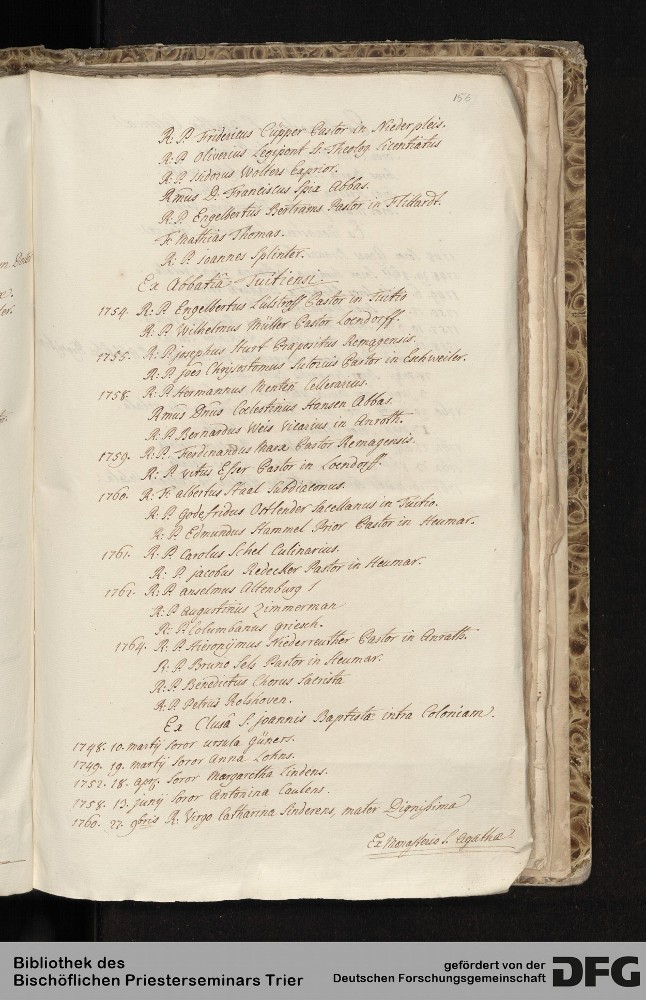 156
R: P. Fridericus Cupper Pastor in Niederpleis.
R: P. Oliverius Legipont S. Theolog. Licentiatus
R: P. Isidorus Wolters Caprior.
Rmus D. Franciscus Spix Abbas.
R: P. Engelbertus Bertrams Pastor in Flittardt.
Fr. Mathias Thomas.
R: P. Joannes Splinter.
Ex Abbatia Tuitiensi
1754. R: P. Engelbertus Lülstroff Pastor in Tuitio
R: P. Wilhelmus Müller Pastor Loendorff.
1755. R: P. josephus Hurt Præpositus Remagensis.
R: P. joes Chrysostomus Sutorius Pastor in Eschweiler.
1758. R: P. Hermannus Menten Cellerarius.
Rmus Dnus Coelestinus Hansen Abbas.
R: P. Bernardus Weis Vicarius in Anroth.
1759. R: P. Ferdinandus Marx Pastor Remagensis.
R: P. Vitus Esser Pastor in Loendorff.
1760. R: Fr. albertus Staal Subdiaconus.
R: P. Godefridus Ostlender Sacellanus in Tuitio.
R: P. Edmundus Hammel Prior Pastor in Heumar.
1761. R: P. Carolus Schel Culinarius.
R: P. jacobus Redecker Pastor in Heumar.
1762. R: P. anselmus Altenburg
R: P. augustinus Zimmerman
R: P. Columbanus grienh.
1764. R: P. Hieronÿmus Niederreuther Pastor in Anrath.
R: P. Bruno Sels Pastor in Heumar.
R: P. Benedictus Chorus Sacrista
R: P. Petrus Rolshoven.
Ex Clusa S. Joannis Baptistæ intra Coloniam.
1748. 10. martÿ Soror ursula Güners.
1749. 19. martÿ Soror Anna Lohns.
1752. 18. apr. Soror Margaretha Lindens.
1758. 13. junÿ Soror Antonina Caulens.
1760. 27. 9bris R: Virgo Catharina Sinderens, mater Dignissima
Ex Monasterio S. Agathæ
Bibliothek des
Bischöflichen Priesterseminars Trier
gefördert von der
Deutschen Forschungsgemeinschaft
DFG